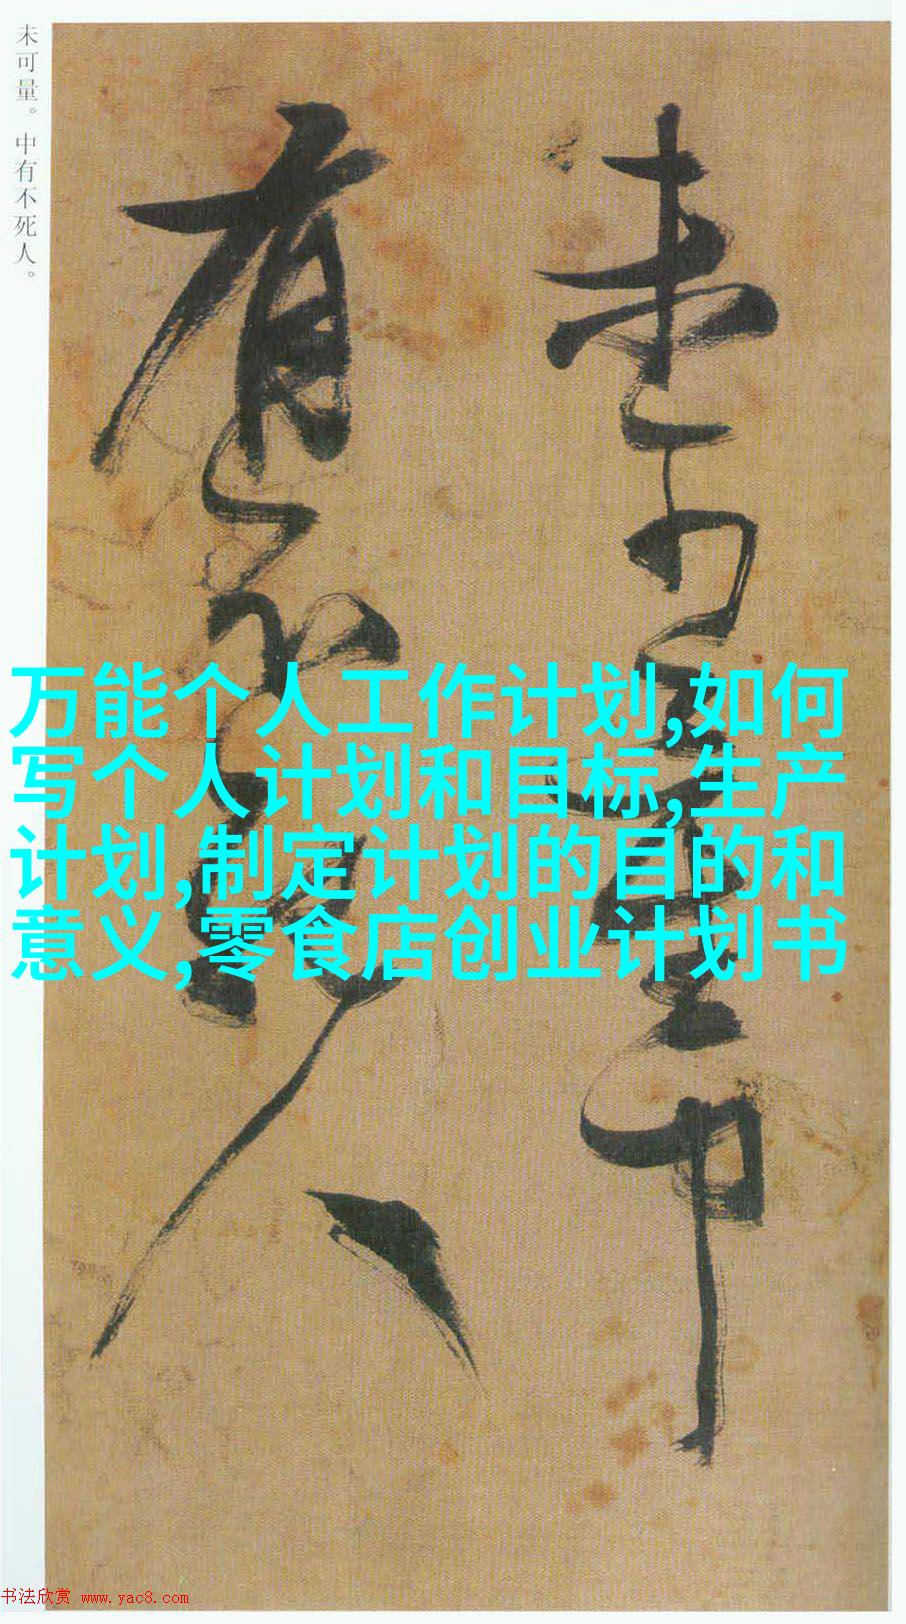 未可量。中有不死人。
未可量中
有不死人
万能个人工作计划,如何
写个人计划和目标,生产
计划,制定计划的目的和
意义,零食店创业计划书
书法欣赏 www.yac8.com